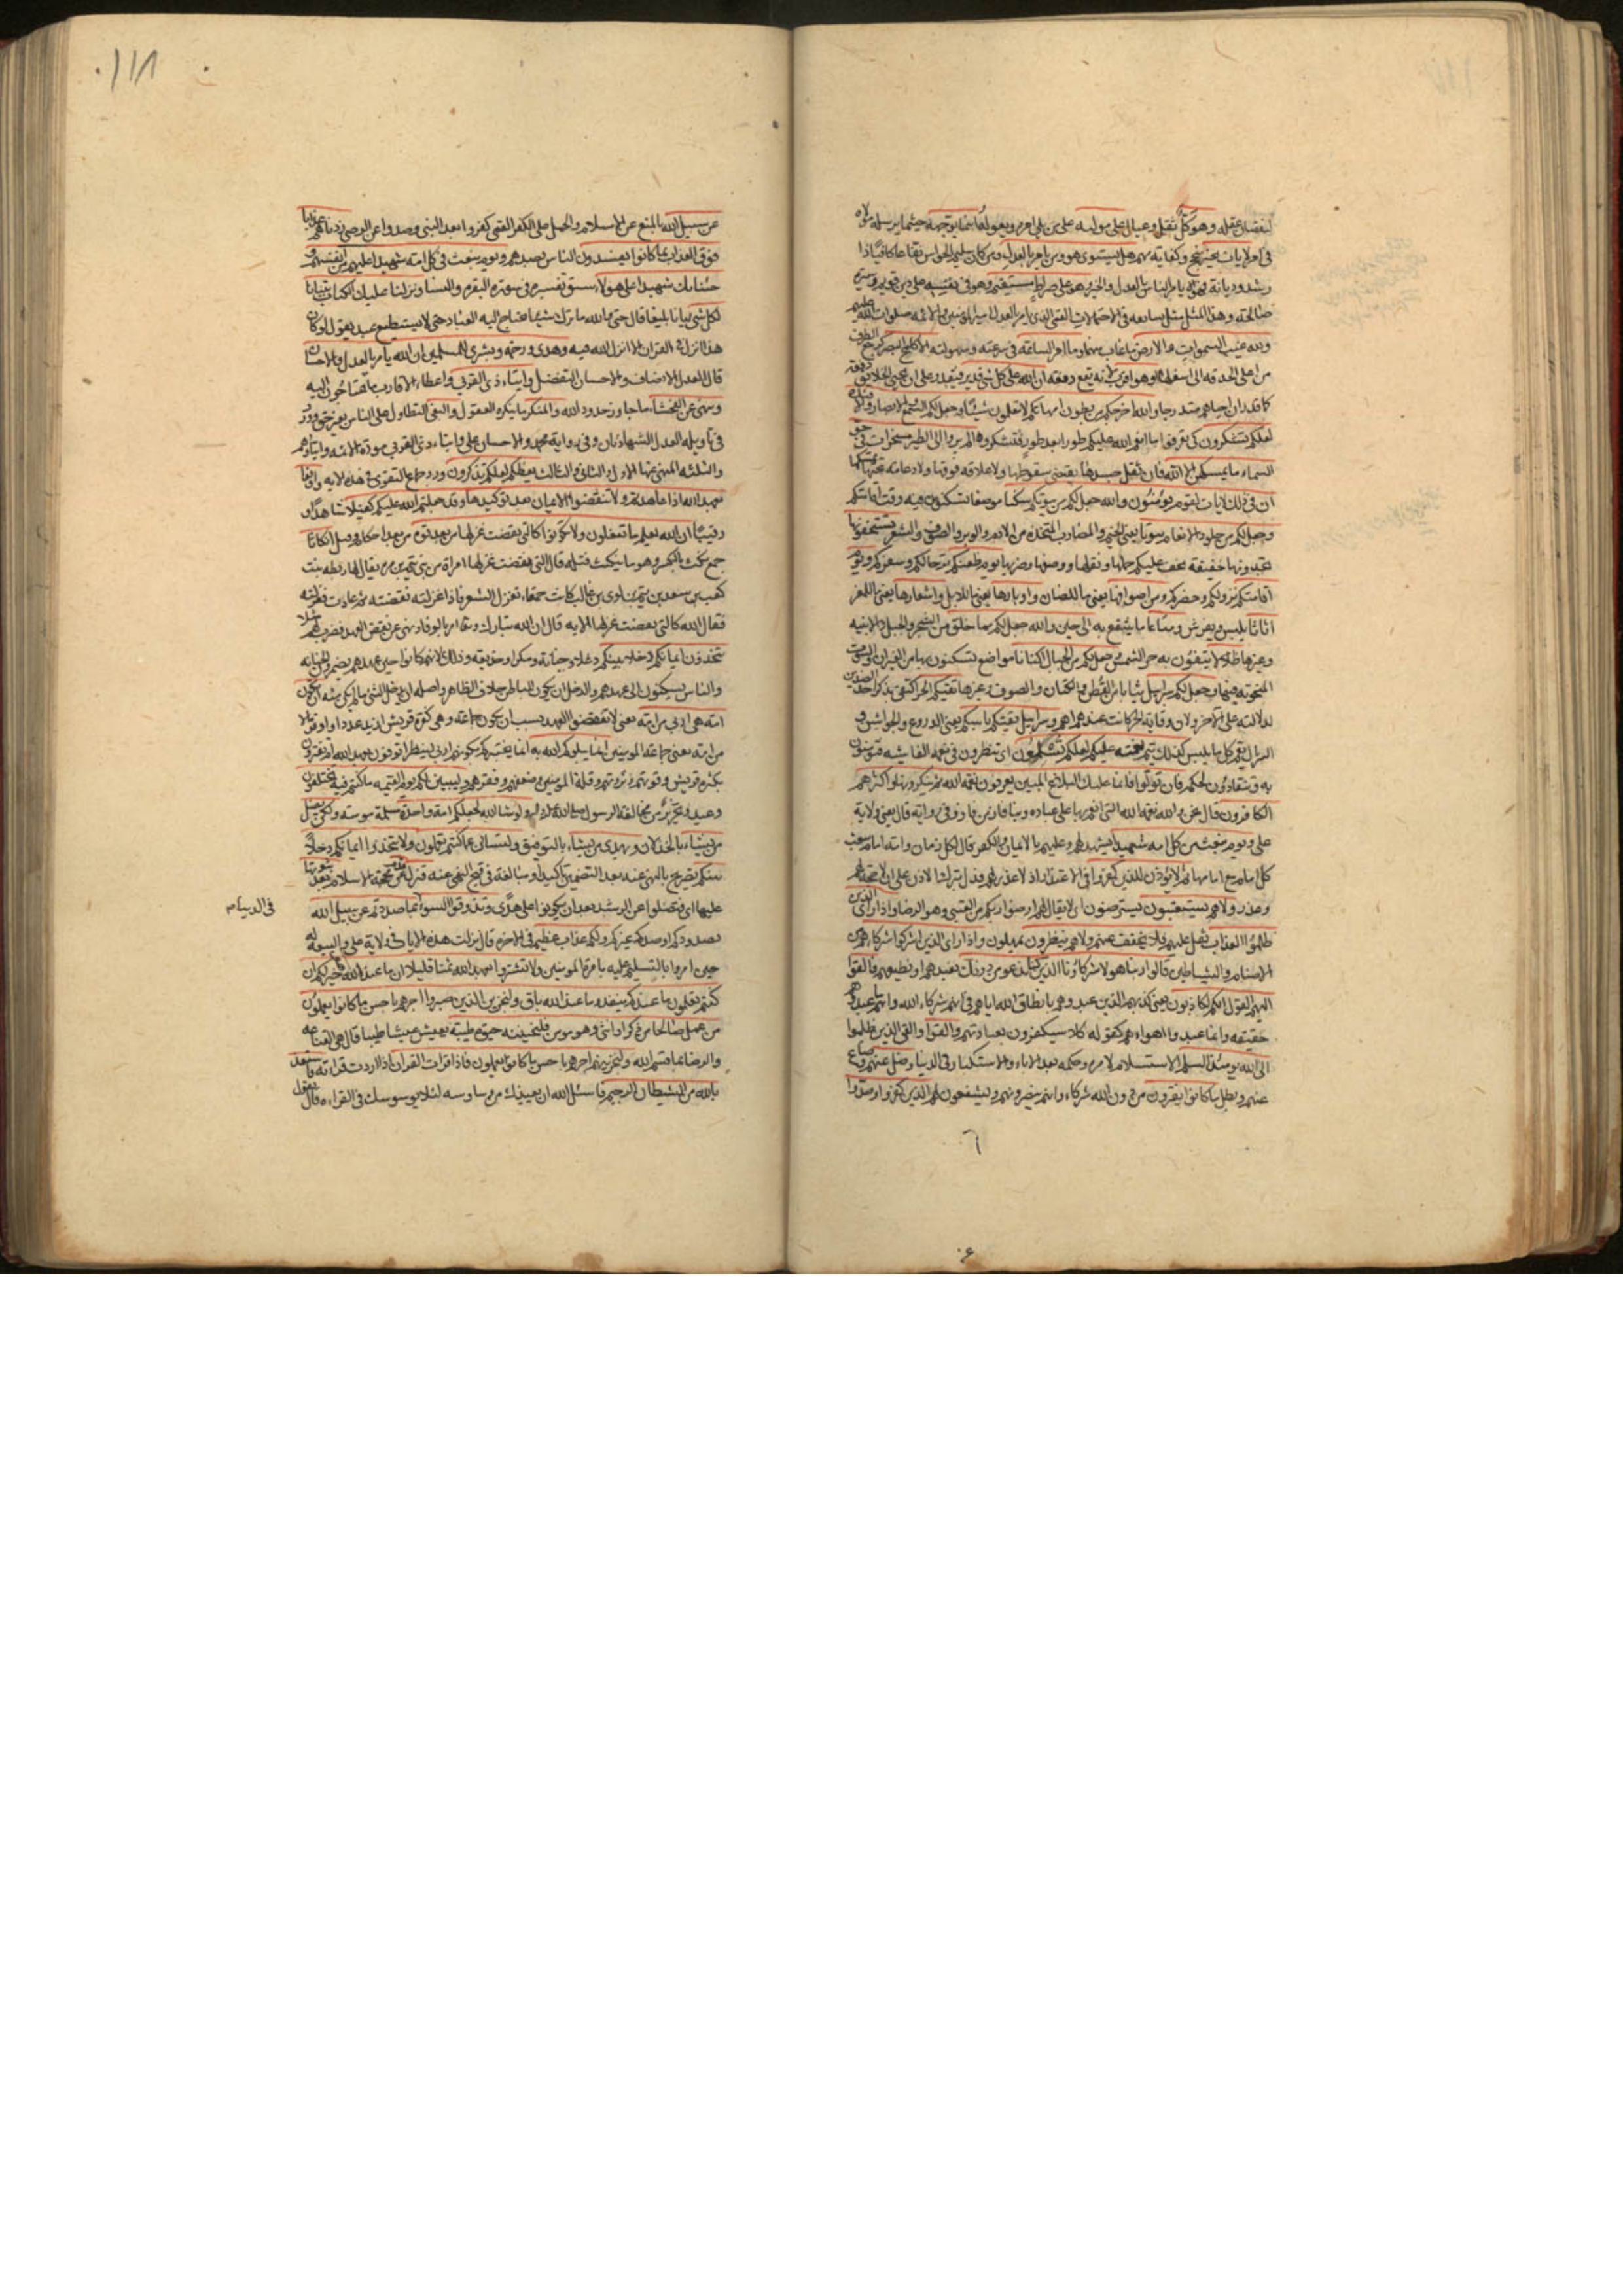 لنقصان عقله وهو كل ثقل وعيال على موليه على من يلي امره ويعوله اينما يوجهه حيثما يرسله مولاه
في امر لا يات بخير بنجح وكفاية مهم هل يستوي هو ومن يامر بالعدل ومن كان سليم الحواس نفاعا كافيا ذا
رشد وديانة فهو يامر الناس بالعدل والخير وهو على صراط مستقيم وهو في نفسه على دين قويم وسيرة
صالحة وهذا المثل مثل سابقه في الاحتمالات القمي الذي يامر بالعدل امير المؤمنين والائمة صلوات الله عليهم
ولله غيب السموات والارض ما غاب منهما وما امر الساعة في سرعته وسهولته الا كلمح البصر كرجع الطرف
من اعلى الحدقة الى اسفلها او هو اقرب لانه يقع دفعة ان الله على كل شي قدير فيقدر على ان يحيي الخلايق دفعة
كما قدر ان احياهم متدرجا والله اخرجكم من بطون امهاتكم لا تعلمون شيئا وجعل لكم السمع والابصار والافئدة
لعلكم تشكرون كي تعرفوا ما انعم الله عليكم طورا بعد طور فتشكروه الم يروا الى الطير مسخرات في جو
السماء ما يمسكهن الا الله فان ثقل جسدها يقتضي سقوطها ولا علاقة فوقها ولا دعامة تحتها تمسكها
ان في ذلك لايات لقوم يؤمنون والله جعل لكم من بيوتكم سكنا موضعا تسكنون فيه وقت اقامتكم
وجعل لكم من جلود الانعام بيوتا يعني الخيم والمضارب المتخذة من الادم والوبر والصوف والشعر تستخفونها
تجدونها خفيفة يخف عليكم حملها ونقلها ووضعها وضربها يوم ظعنكم ترحالكم وسفركم ويوم
اقامتكم نزولكم وحضركم ومن اصوافها يعني ما للضان واوبارها يعني ما للابل واشعارها يعني ما للمعز
اثاثا ما يلبس ويفرش ومتاعا ما ينتفع به الى حين والله جعل لكم مما خلق من الشجر والجبل والابنية
وغيرها ظلالا يتقون به حر الشمس وجعل لكم من الجبال اكنانا مواضع تسكنون بها من الغيران والبيوت
المنحوتة فيها وجعل لكم سرابيل ثيابا من القطن والكتان والصوف وغيرها تقيكم الحر اكتفى بذكر احد الضدين
لدلالته على الاخر ولان وقاية الحر كانت عندهم اهم وسرابيل تقيكم باسكم يعني الدروع والجواشن و
السربال يعم كل ما يلبس كذلك يتم نعمته عليكم لعلكم تسلمون اي تنظرون في نعمه الفاشية فتؤمنون
به وتنقادون لحكمه فان تولوا فانما عليك البلاغ المبين يعرفون نعمة الله ثم ينكرونها واكثرهم
الكافرون قال نحن والله نعمة الله التي انعم بها على عباده وبنا فاز من فاز وفي رواية قال يعني ولاية
علي ويوم نبعث من كل امة شهيدا يشهد لهم وعليهم بالايمان والكفر قال لكل زمان وامة امام تبعث
كل امة مع امامها ثم لا يؤذن للذين كفروا في الاعتذار اذ لا عذر لهم فدل بترك الاذن على ان لا حجة لهم
وعذر ولا هم يستعتبون يسترضون اي لا يقال لهم ارضوا ربكم من العتبى وهو الرضا واذا راى الذين
ظلموا العذاب ثقل عليهم فلا يخفف عنهم ولا هم ينظرون يمهلون واذا راى الذين اشركوا شركاءهم من
الاصنام والشياطين قالوا ربنا هولاء شركاؤنا الذين كنا ندعو من دونك نعبدهم او نطيعهم فالقوا
اليهم القول انكم لكاذبون يعني كذبهم الذين عبدوهم بانطاق الله اياهم في انهم شركاء الله وانهم ما عبدوهم
حقيقة وانما عبدوا اهواءهم كقوله كلا سيكفرون بعبادتهم والقوا والقي الذين ظلموا
الى الله يومئذ السلم الاستسلام لامره وحكمه بعد الاباء والاستكبار في الدنيا وضل عنهم وضاع
عنهم وبطل ما كانوا يفترون من دون الله شركاء وانهم ينصرونهم ويشفعون لهم الذين كفروا وصدوا
١١٨
عن سبيل الله بالمنع عن الاسلام والحمل على الكفر القمي كفروا بعد النبي وصدوا عن الوصي زدناهم عذابا
فوق العذاب بما كانوا يفسدون الناس بصدهم ويوم نبعث في كل امة شهيدا عليهم من انفسهم و
جئنا بك شهيدا على هولاء سبق تفسيره في سورة البقرة والنساء ونزلنا عليك الكتاب تبيانا
لكل شي بيانا بليغا قال حتى والله ما ترك شيئا يحتاج اليه العباد حتى لا يستطيع عبد يقول لو كان
هذا انزل في القران الا انزل الله فيه وهدى ورحمة وبشرى للمسلمين ان الله يامر بالعدل والاحسان
قال العدل الانصاف والاحسان التفضل وايتاء ذي القربى واعطاء الاقارب ما يحتاجون اليه
وينهى عن الفحشاء ما جاوز حدود الله والمنكر ما ينكره العقول والبغي التطاول على الناس بغير حق وورد
في تاويله العدل الشهادتان وفي رواية محمد والاحسان علي وايتاء ذي القربى مودة الائمة وايتاؤهم
والثلثة المنهي عنها الاول والثاني والثالث يعظكم لعلكم تذكرون وورد جماع التقوى في هذه الاية واوفوا
بعهد الله اذا عاهدتم ولا تنقضوا الايمان بعد توكيدها وقد جعلتم الله عليكم كفيلا شاهدا و
رقيبا ان الله يعلم ما تفعلون ولا تكونوا كالتي نقضت غزلها من بعد قوة من بعد احكام وفتل انكاثا
جمع نكث بالكسر وهو ما ينكث فتله قال التي نقضت غزلها امراة من بني تميم بن مرة يقال لها ريطة بنت
كعب بن سعد بن تيم بن لوي بن غالب كانت حمقاء تغزل الشعر فاذا غزلته نقضته ثم عادت فغزلته
فقال الله كالتي نقضت غزلها الاية قال ان الله تبارك وتعالى امر بالوفاء ونهى عن نقض العهد فضرب لهم مثلا
تتخذون ايمانكم دخلا بينكم دغلا وخيانة ومكرا وخديعة وذلك لانهم كانوا حين عهدهم يضمرون الخيانة
والناس يسكنون الى عهدهم والدخل ان يكون الباطن خلاف الظاهر واصله ان يدخل الشي ما لم يكن منه ان تكون
امة هي اربى من امة يعني لا تنقضوا العهد بسبب ان يكون جماعة وهي كفرة قريش ازيد عددا واوفر مالا
من امة يعني جماعة المؤمنين انما يبلوكم الله به انما يختبركم بكونهم اربى لينظر اتوفون بعهد الله ام تغترون
بكثرة قريش وقوتهم وثروتهم وقلة المؤمنين وضعفهم وفقرهم وليبينن لكم يوم القيمة ما كنتم فيه تختلفون
وعيد وتحذير من مخالفة الرسول صلى الله عليه واله ولو شاء الله لجعلكم امة واحدة مسلمة مؤمنة ولكن يضل
من يشاء بالخذلان ويهدي من يشاء بالتوفيق ولتسئلن عما كنتم تعملون ولا تتخذوا ايمانكم دخلا
بينكم تصريح بالنهي عنه بعد التضمين تاكيدا ومبالغة في قبح المنهي عنه فتزل قدم عن محجة الاسلام بعد ثبوتها
عليها اي فتضلوا عن الرشد بعد ان يكونوا على هدى وتذوقوا السوء بما صددتم عن سبيل الله
في الدنيا م
بصدودكم او صدكم غيركم ولكم عذاب عظيم في الاخرة قال نزلت هذه الايات في ولاية علي والبيعة له
حين امروا بالتسليم عليه بامرة المؤمنين ولا تشتروا بعهد الله ثمنا قليلا ان ما عند الله هو خير لكم ان
كنتم تعلمون ما عندكم ينفد وما عند الله باق ولنجزين الذين صبروا اجرهم باحسن ما كانوا يعملون
من عمل صالحا من ذكر او انثى وهو مومن فلنحيينه حيوة طيبة يعيش عيشا طيبا قال هي القناعة
والرضا بما قسم الله ولنجزينهم اجرهم باحسن ما كانوا يعملون فاذا قرات القران اذا اردت قراءته فاستعذ
بالله من الشيطان الرجيم فاسئل الله ان يعيذك من وساوسه لئلا يوسوسك في القراءه قال يقول